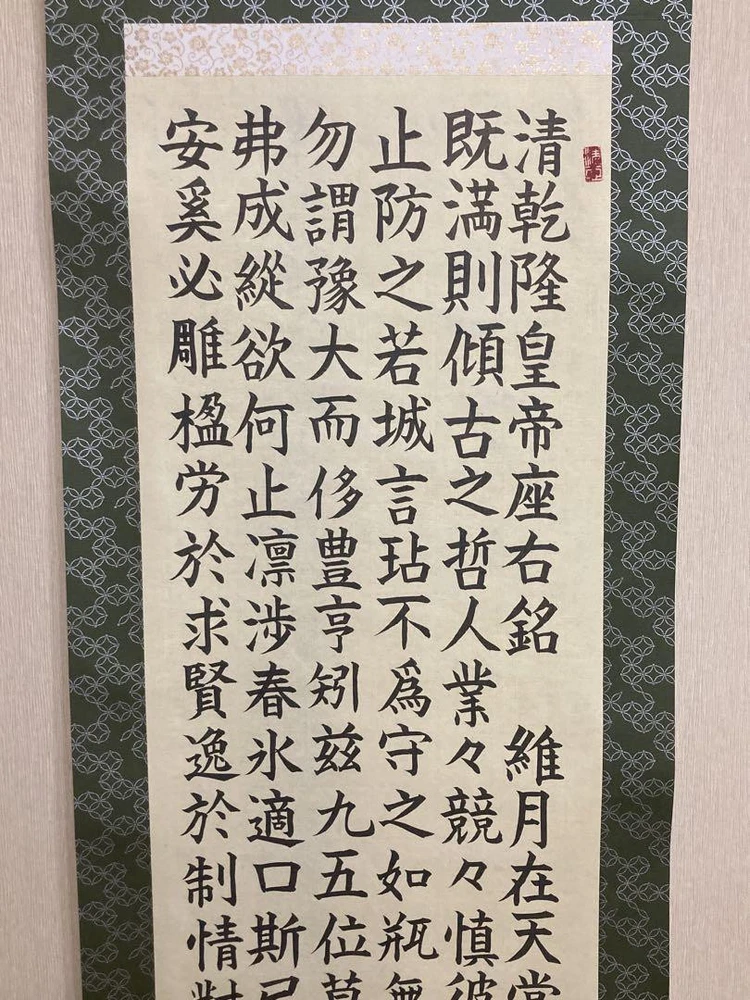 清乾隆皇帝座右銘　維月在天
既満則傾古之哲人業々競々慎
止防之若城言玷不爲守之如瓶無
勿謂豫大而侈豊亨矧茲九五位
弗成縱欲何止凛渉春氷適口斯
安奚必雕楹労於求賢逸於制情